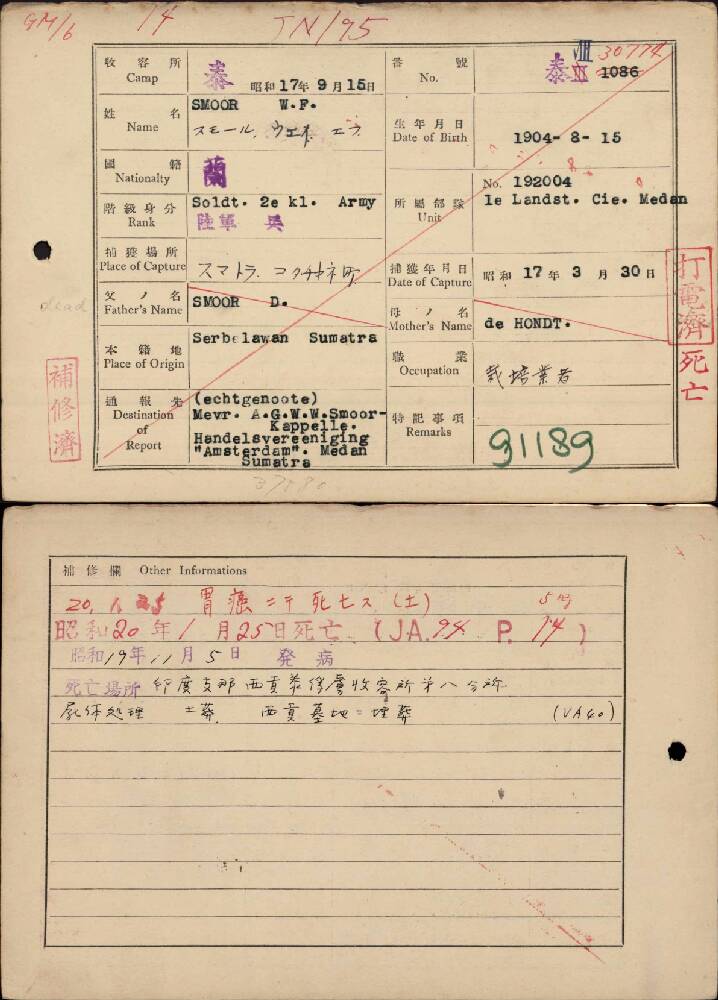 GM/6
14
JN/95
收容所
Camp
泰
昭和17年9月15日
番號
No.
泰
VIII
30774
1086
姓名
Name
SMOOR W.F.
スモール. ウエ. エフ
生年月日
Date of Birth
1904-8-15
國籍
Nationality
蘭
階級身分
Rank
Soldt. 2e kl. Army
陸軍 兵
所屬部隊
Unit
No. 192004
1e Landst. Cie. Medan
捕獲場所
Place of Capture
スマトラ. コタチヤネ町
捕獲年月日
Date of Capture
昭和17年3月30日
父ノ名
Father's Name
SMOOR D.
母ノ名
Mother's Name
de HONDT.
本籍地
Place of Origin
Serbelawan Sumatra
職業
Occupation
栽培業者
通報先
Destination
of
Report
(echtgenoote)
Mevr. A.G.W.W.Smoor-
Kappelle.
Handelsvereeniging
"Amsterdam". Medan
Sumatra
特記事項
Remarks
91189
dead
補修濟
打電濟
死亡
補修欄 Other Informations
20. 1. 25 胃癌ニテ死亡ス (土)
昭和20年1月25日死亡 (JA.94 P. 14)
昭和19年11月5日 発病
死亡場所 印度支那西貢泰俘虜收容所第八分所
屍体処理 土葬 西貢墓地ニ埋葬 (VA60)